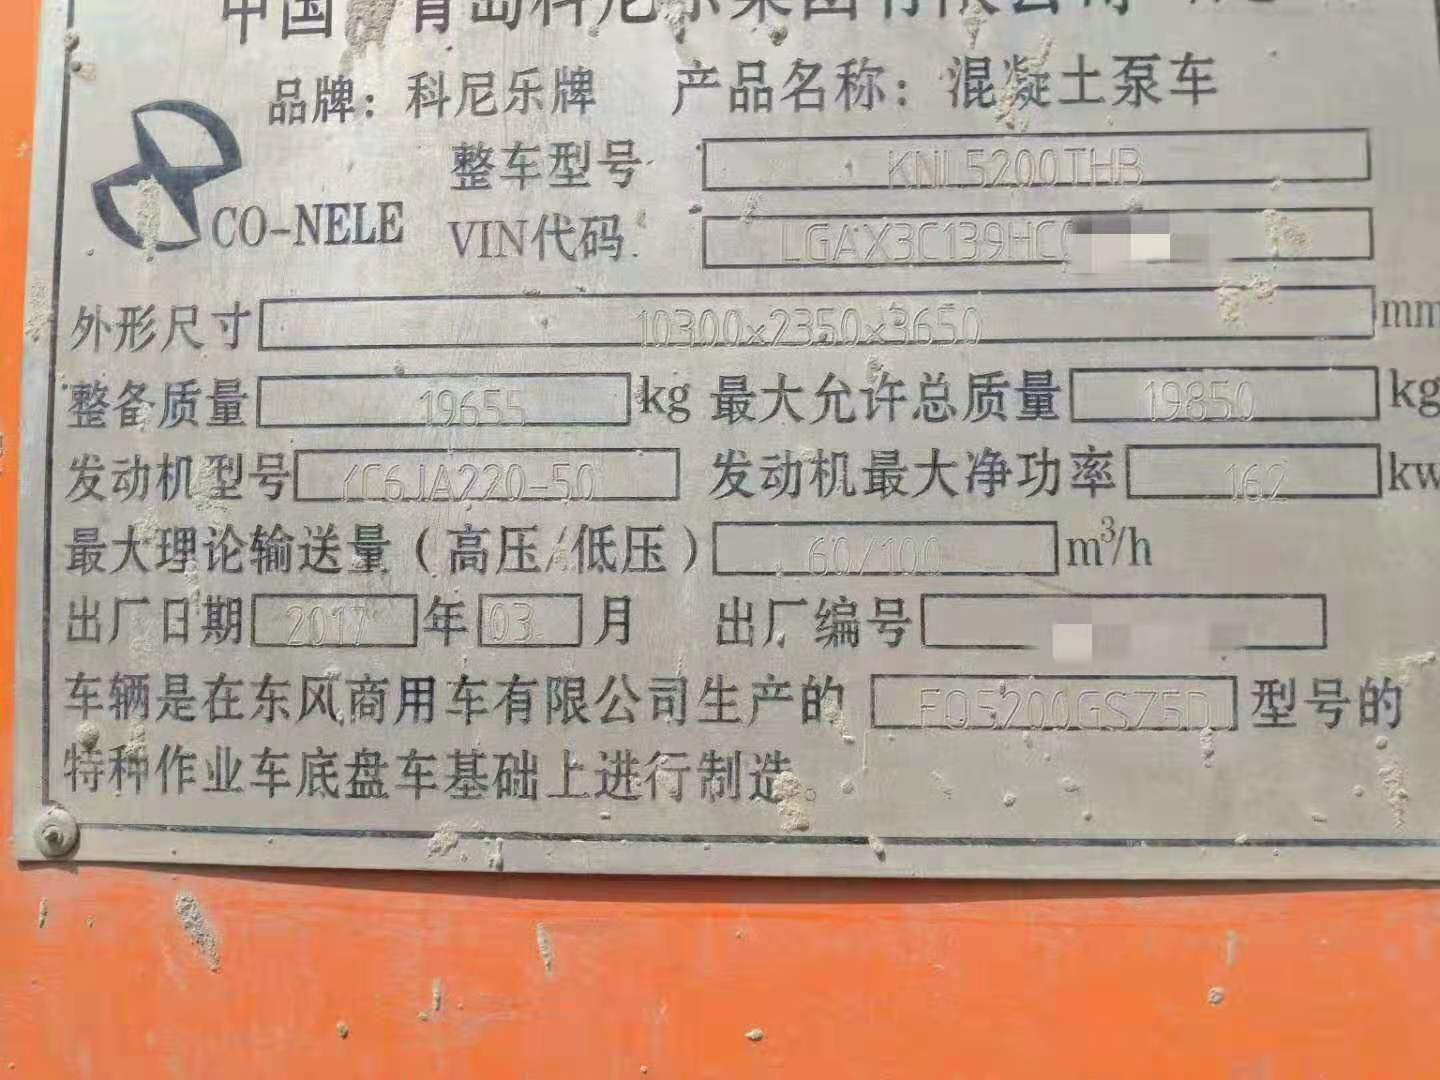 中国 青岛科尼乐集团有限公司
品牌：科尼乐牌 产品名称：混凝土泵车
CO-NELE
整车型号 KNL5200THB
VIN代码 LGAX3C139HC
外形尺寸 10300x2350x3650 mm
整备质量 19655 kg 最大允许总质量 19850 kg
发动机型号 YC6JA220-50 发动机最大净功率 162 kw
最大理论输送量（高压/低压） 60/100 m³/h
出厂日期 2017 年 03 月 出厂编号
车辆是在东风商用车有限公司生产的 EQ5200GSZ5D 型号的
特种作业车底盘车基础上进行制造。